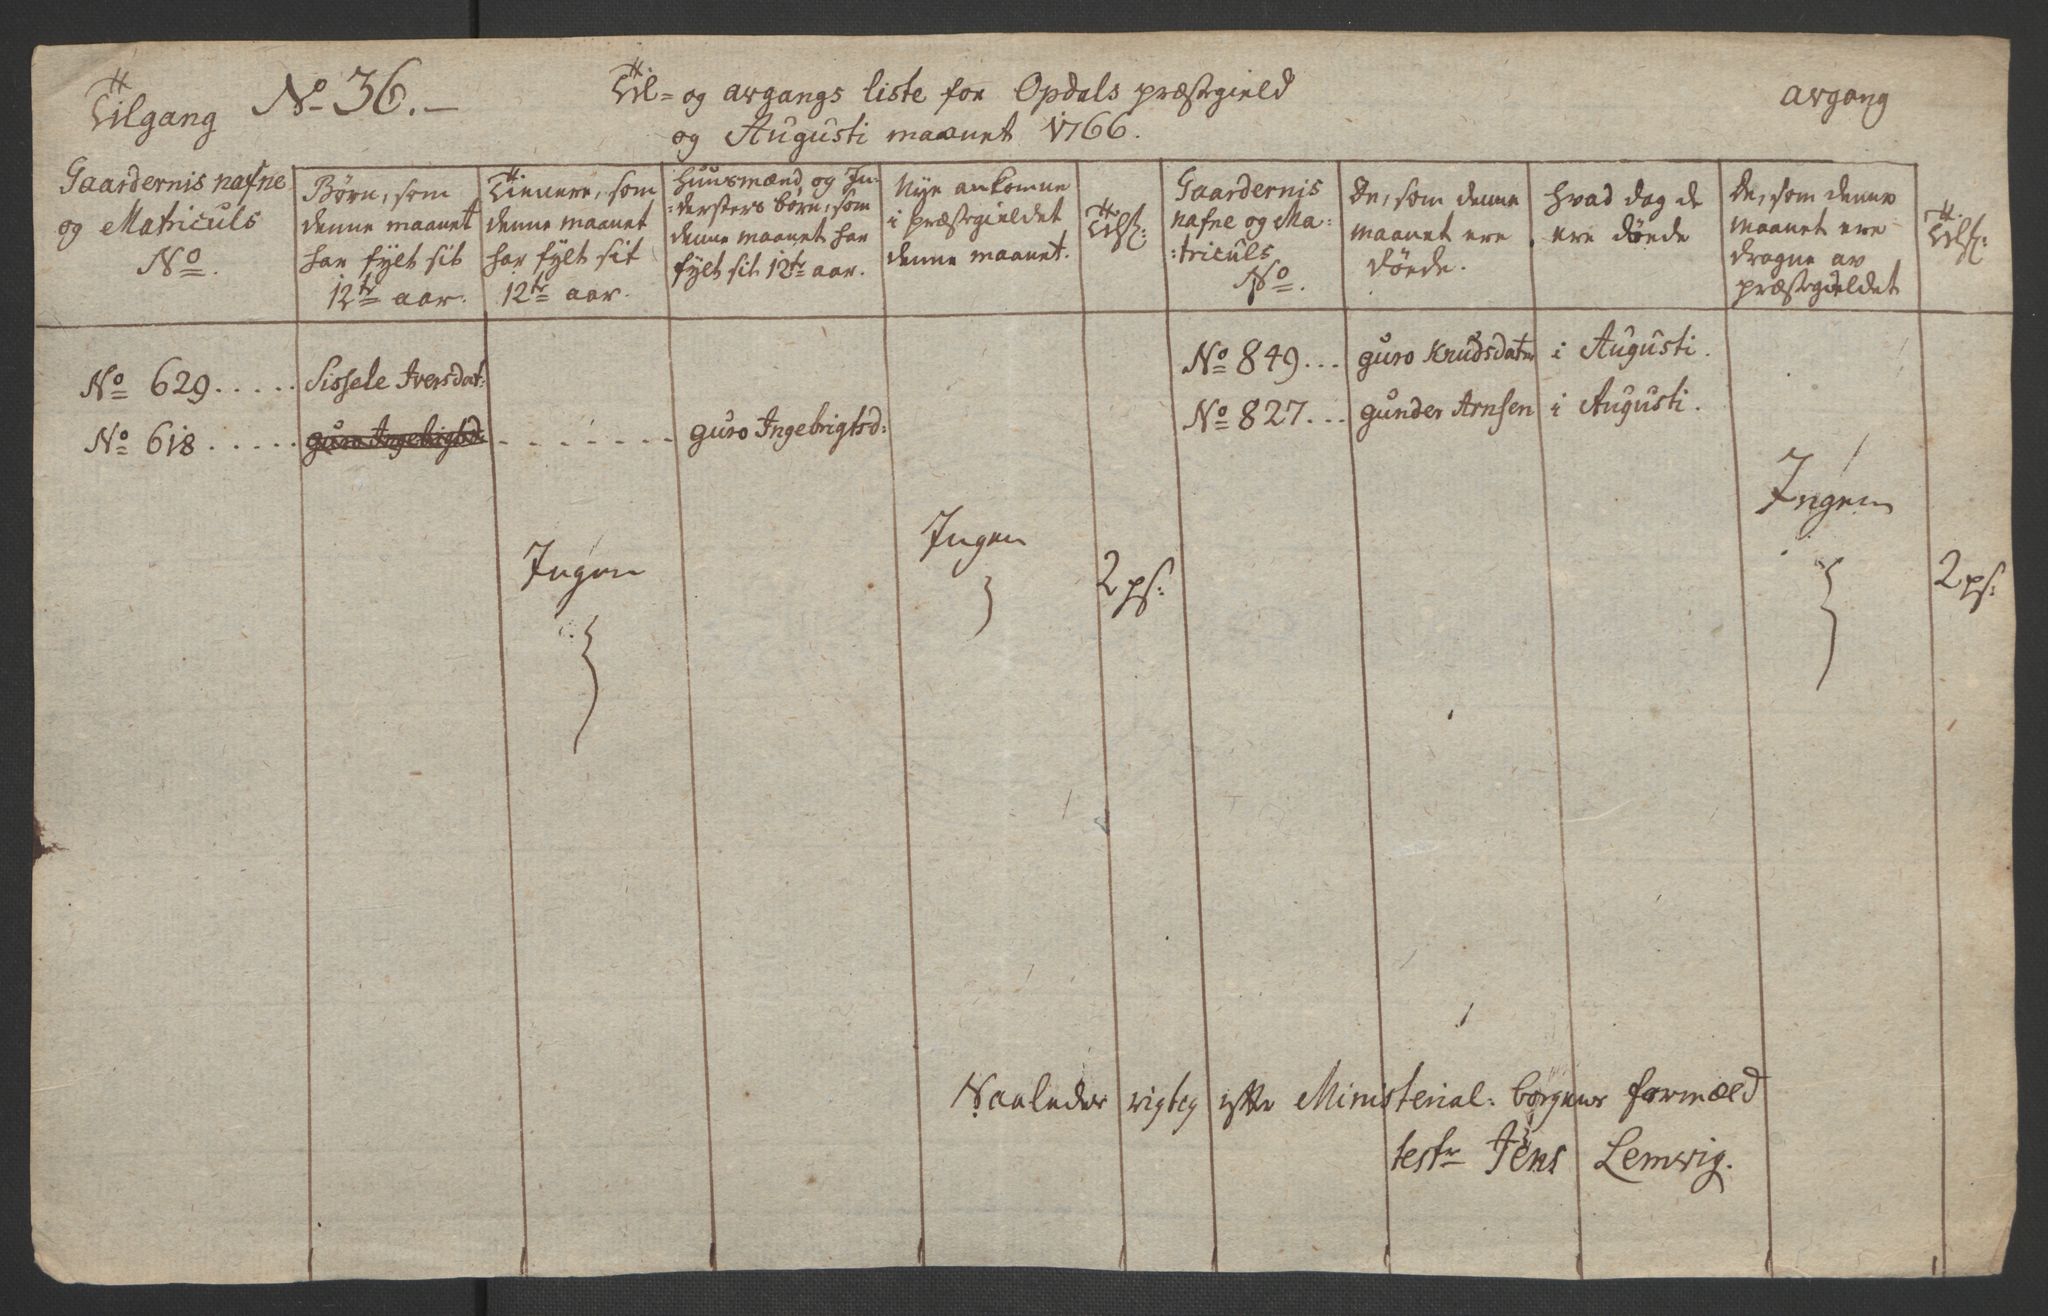 Tilgang No 36.
Til= og avgangs liste for Opdals præstegield
og Augusti maanet 1766.
avgang
Gaardernis nafne
og Matriculs
No.
Børn, som
denne maanet
har fylt sit
12te aar.
Tienere, som
denne maanet
har fylt sit
12te aar.
Huusmænd og In=
:dersters börn, som
denne maanet har
fylt sit 12te aar.
Nÿe ankomne
i præstegieldet
denne maanet.
Gaardernis
nafne og Ma:
:triculs
No.
De, som denne
maanet ere
döede.
hvad dag de
ere döede
De, som denne
maanet ere
dragne av
præstegieldet
No 629..... Sissele Iversdat:
No 618..... guro Ingebrigtsd: ....... guro Ingebrigtsd:
No 849... guro Knudsdater i Augusti.
No 827... gunder Arnsen i Augusti.
Ingen
Ingen
2 ps:
Ingen
2 ps:
Saaledes rigtig efter Ministerial: bogens formæld
test: Jens Lemvig.